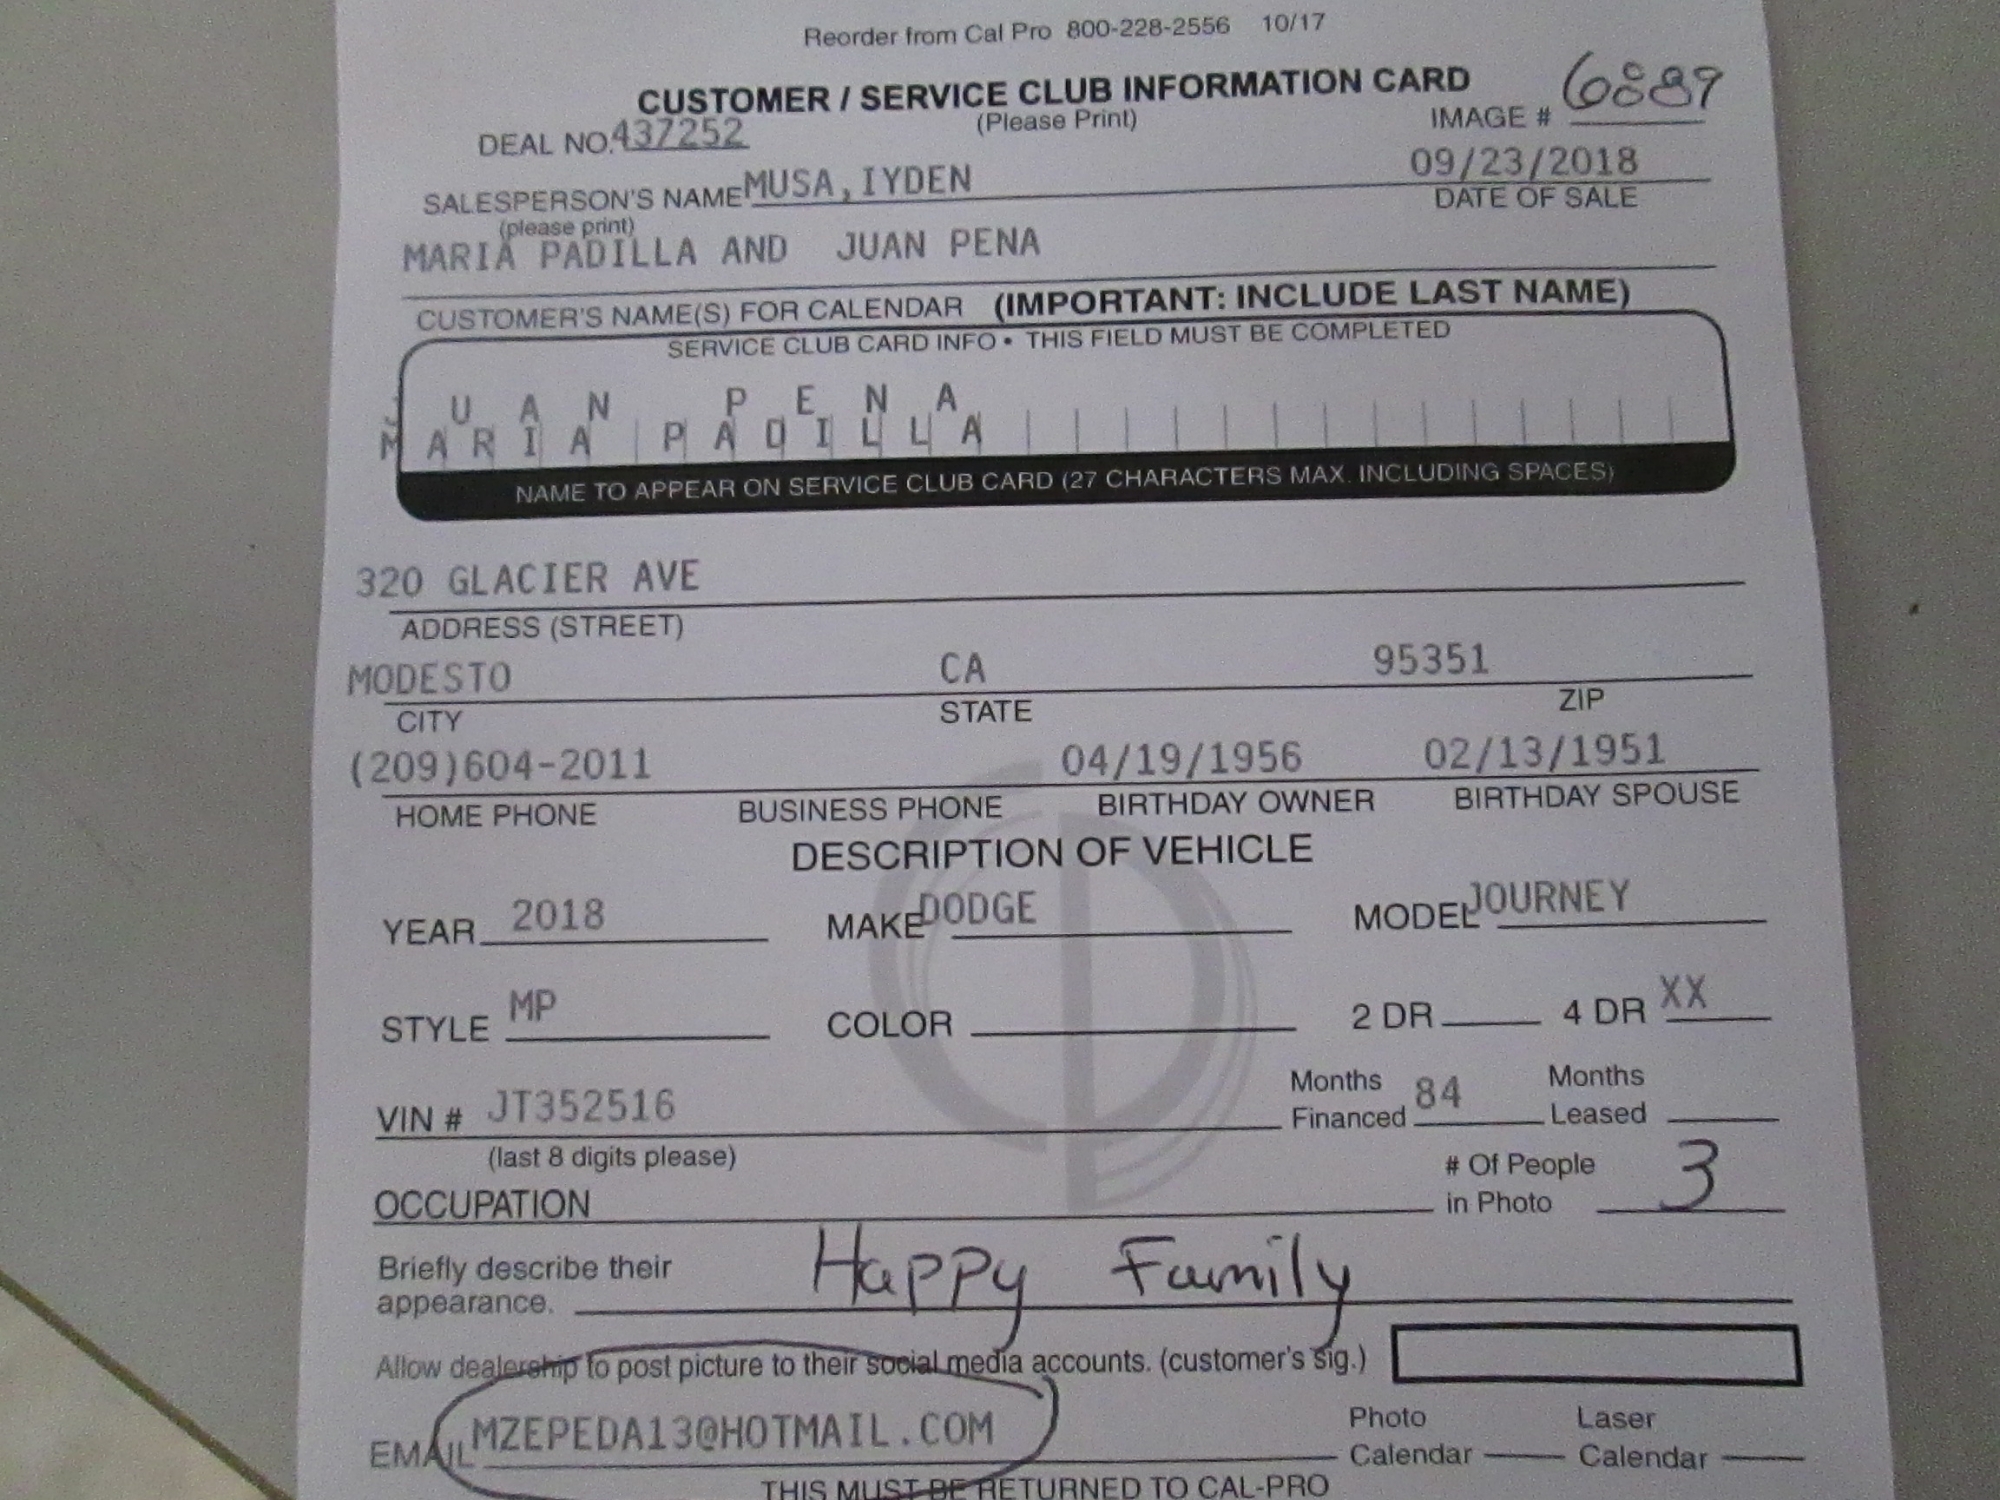 Reorder from Cal Pro 800-228-2556 10/17
CUSTOMER / SERVICE CLUB INFORMATION CARD
(Please Print)
IMAGE # 6889
DEAL NO. 437252
SALESPERSON'S NAME MUSA, IYDEN
(please print)
09/23/2018
DATE OF SALE
MARIA PADILLA AND JUAN PENA
CUSTOMER'S NAME(S) FOR CALENDAR (IMPORTANT: INCLUDE LAST NAME)
SERVICE CLUB CARD INFO • THIS FIELD MUST BE COMPLETED
JUAN PENA
MARIA PADILLA
NAME TO APPEAR ON SERVICE CLUB CARD (27 CHARACTERS MAX. INCLUDING SPACES)
320 GLACIER AVE
ADDRESS (STREET)
MODESTO CA 95351
CITY STATE ZIP
(209)604-2011 04/19/1956 02/13/1951
HOME PHONE BUSINESS PHONE BIRTHDAY OWNER BIRTHDAY SPOUSE
DESCRIPTION OF VEHICLE
YEAR 2018 MAKE DODGE MODEL JOURNEY
STYLE MP COLOR 2 DR 4 DR XX
VIN # JT352516
(last 8 digits please)
Months Financed 84 Months Leased
OCCUPATION
# Of People in Photo 3
Briefly describe their
appearance. Happy Family
Allow dealership to post picture to their social media accounts. (customer's sig.)
EMAIL MZEPEDA13@HOTMAIL.COM
Photo Calendar Laser Calendar
THIS MUST BE RETURNED TO CAL-PRO